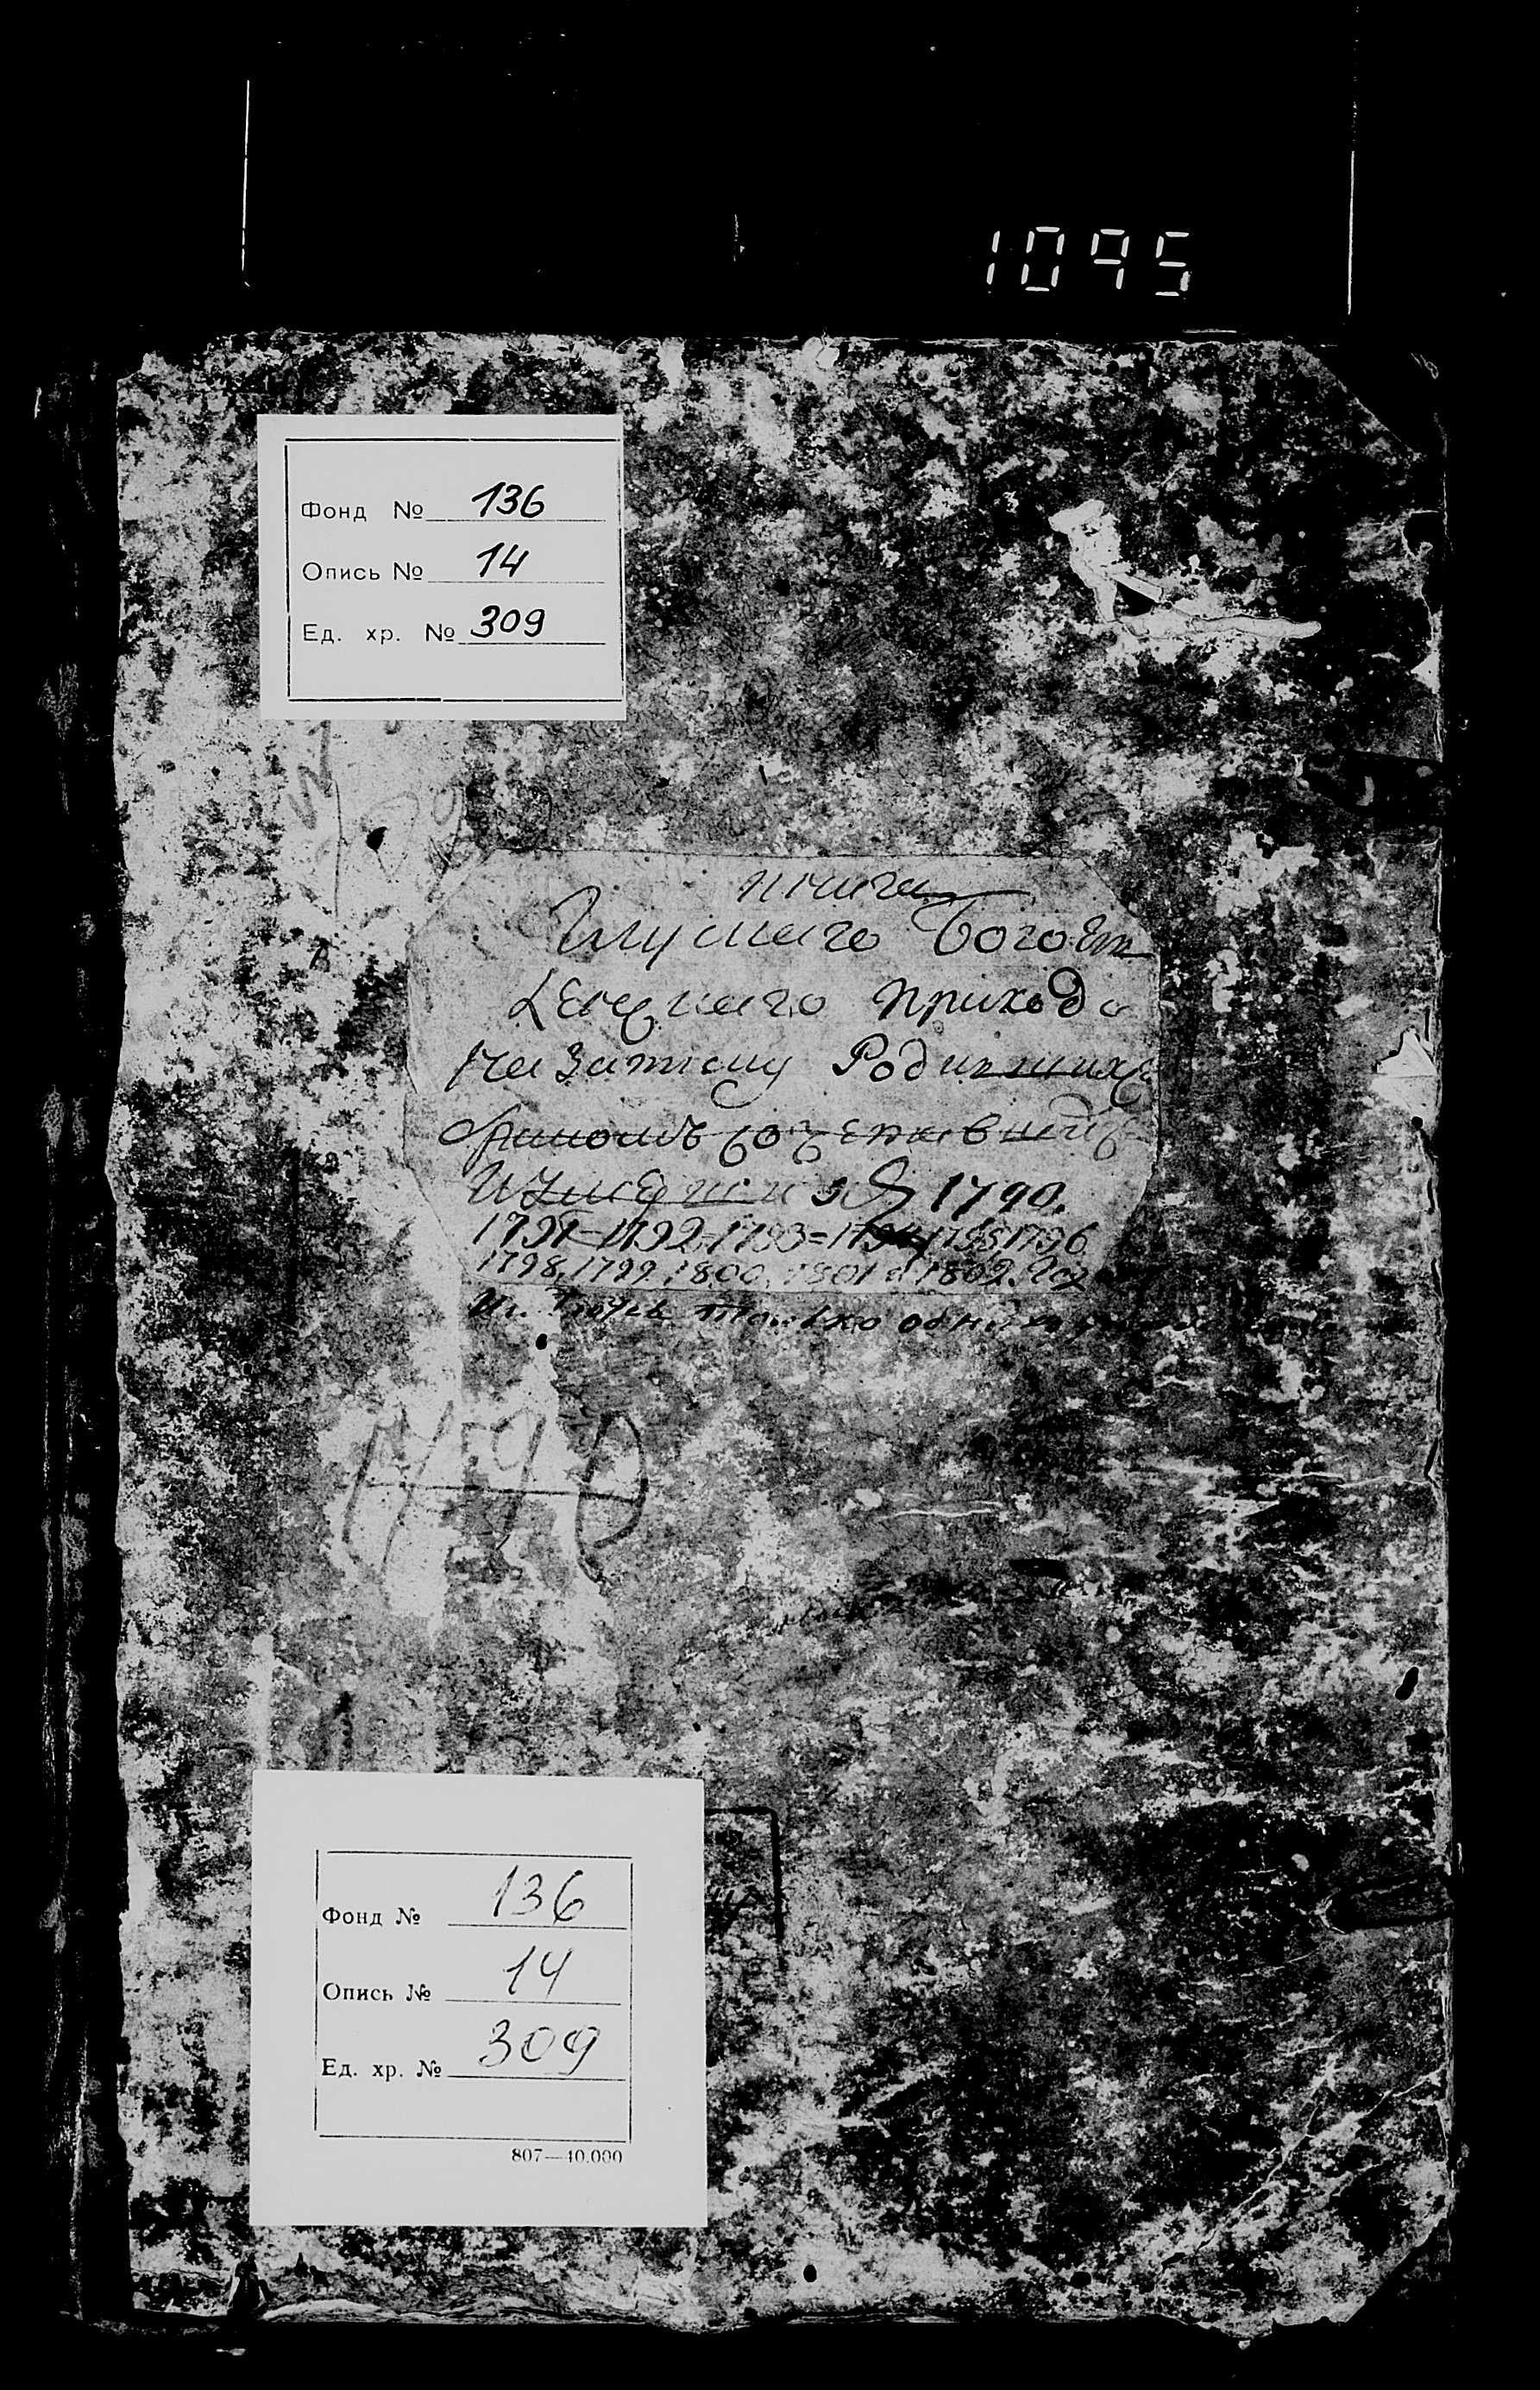 1095
Фонд № 136
Опись № 14
Ед. хр. № 309
книга
Глуского Богоявл
ленского прихода
На Записку Родившихся
браком сочетавшихся
И Умерших 1790.
1791=1792=1793=1794=1795,1796
1798,1799,1800,1801 и 1802. год
только одних
1790
Фонд № 136
Опись № 14
Ед. хр. № 309
807—40.000